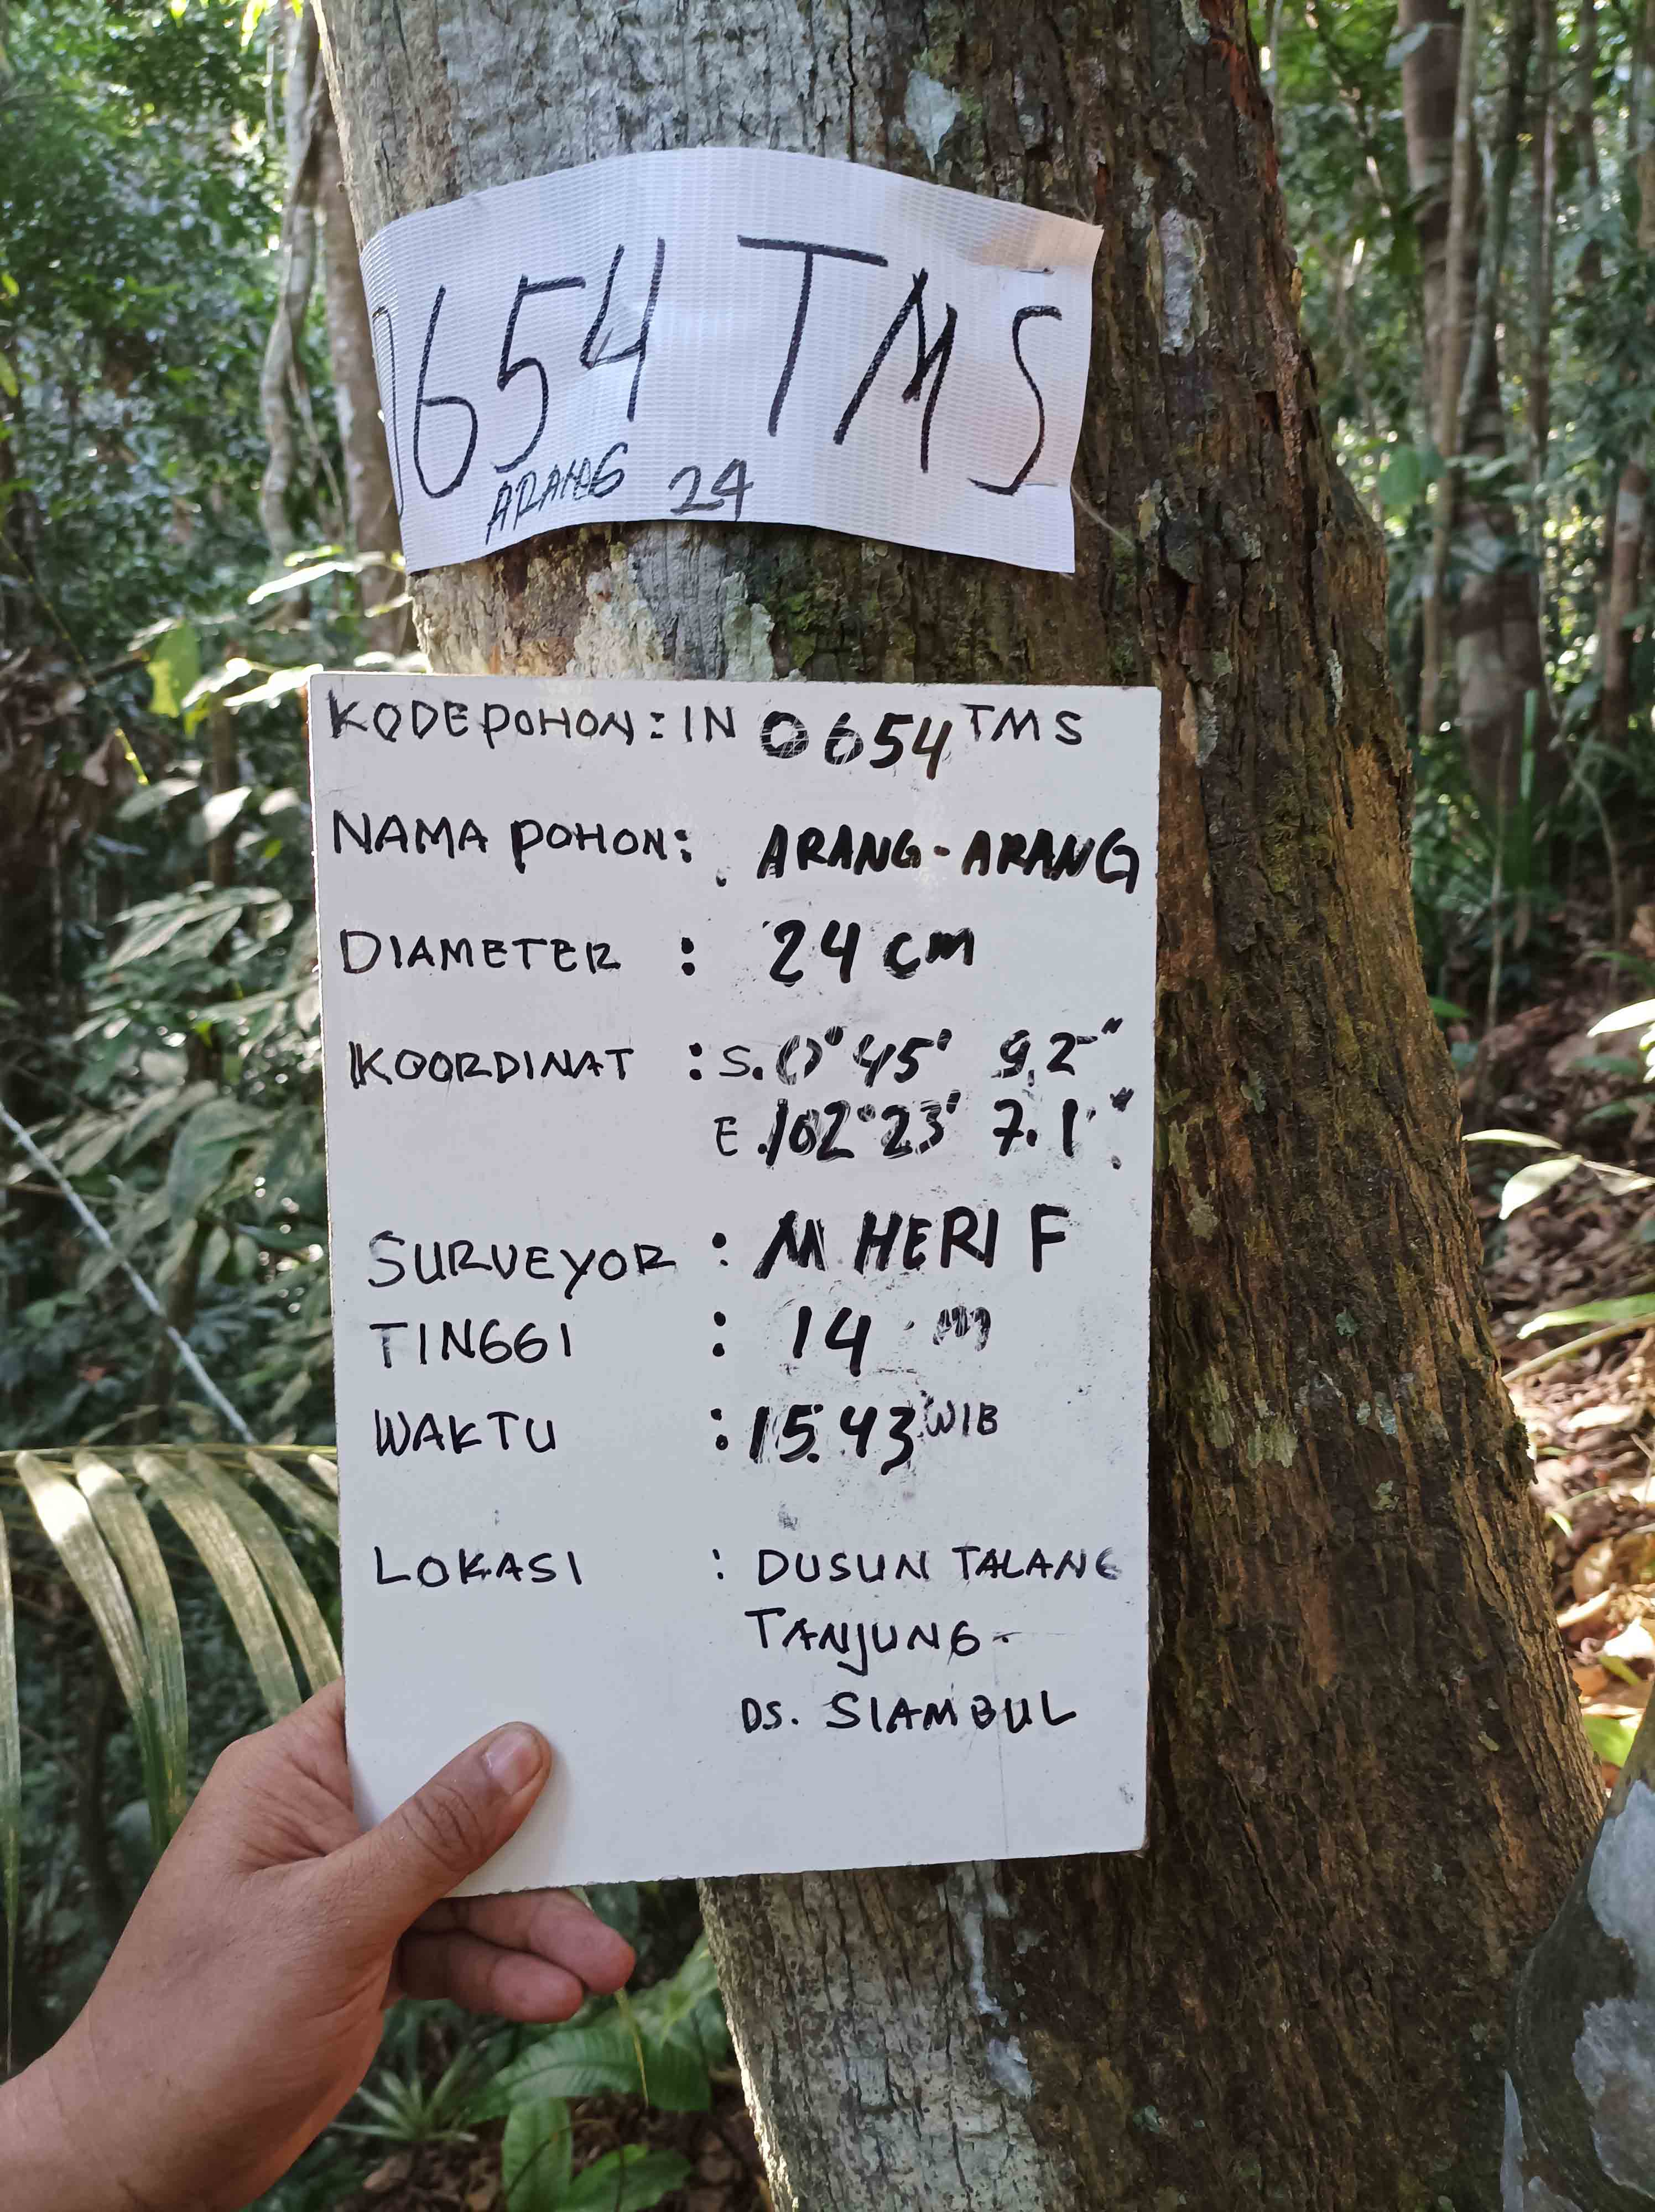 0654 TMS
ARANG 24
KODE POHON : IN 0654 TMS
NAMA POHON : ARANG-ARANG
DIAMETER : 24 cm
KOORDINAT : S. 0° 45' 9,2"
E. 102° 23' 7.1"
SURVEYOR : M HERI F
TINGGI : 14 m
WAKTU : 15.43 WIB
LOKASI : DUSUN TALANG
TANJUNG.
DS. SIAMBUL